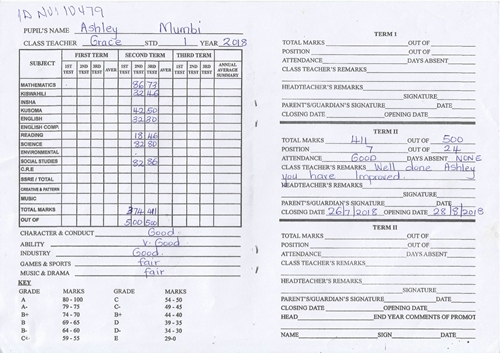 ID NU110479
PUPIL'S NAME Ashley Mumbi
CLASS TEACHER Grace STD 1 YEAR 2018
FIRST TERM SECOND TERM THIRD TERM
SUBJECT 1ST TEST 2ND TEST 3RD TEST AVER 1ST TEST 2ND TEST 3RD TEST AVER 1ST TEST 2ND TEST 3RD TEST AVER ANNUAL AVERAGE SUMMARY
MATHEMATICS 86 73
KISWAHILI 32 46
INSHA
KUSOMA 42 50
ENGLISH 32 30
ENGLISH COMP.
READING 18 46
SCIENCE 82 80
ENVIRONMENTAL
SOCIAL STUDIES 82 86
C.R.E
SSRE / TOTAL
CREATIVE & PATTERN
MUSIC
TOTAL MARKS 374 411
OUT OF 500 500
CHARACTER & CONDUCT Good
ABILITY V. Good
INDUSTRY Good
GAMES & SPORTS fair
MUSIC & DRAMA fair
KEY
GRADE MARKS GRADE MARKS
A 80 - 100 C 54 - 50
A- 79 - 75 C- 49 - 45
B+ 74 - 70 D+ 44 - 40
B 69 - 65 D 39 - 35
B- 64 - 60 D- 34 - 30
C+ 59 - 55 E 29-0
TERM I
TOTAL MARKS OUT OF
POSITION OUT OF
ATTENDANCE DAYS ABSENT
CLASS TEACHER'S REMARKS
HEADTEACHER'S REMARKS
SIGNATURE
PARENT'S/GUARDIAN'S SIGNATURE DATE
CLOSING DATE OPENING DATE
TERM II
TOTAL MARKS 411 OUT OF 500
POSITION 7 OUT OF 24
ATTENDANCE GOOD DAYS ABSENT NONE
CLASS TEACHER'S REMARKS Well done Ashley
you have improved.
HEADTEACHER'S REMARKS
SIGNATURE
PARENT'S/GUARDIAN'S SIGNATURE DATE
CLOSING DATE 26/7/2018 OPENING DATE 28/8/2018
TERM II
TOTAL MARKS OUT OF
POSITION OUT OF
ATTENDANCE DAYS ABSENT
CLASS TEACHER'S REMARKS
HEADTEACHER'S REMARKS
SIGNATURE
PARENT'S/GUARDIAN'S SIGNATURE DATE
CLOSING DATE OPENING DATE
HEAD END YEAR COMMENTS OF PROMOT
NAME SIGN DATE